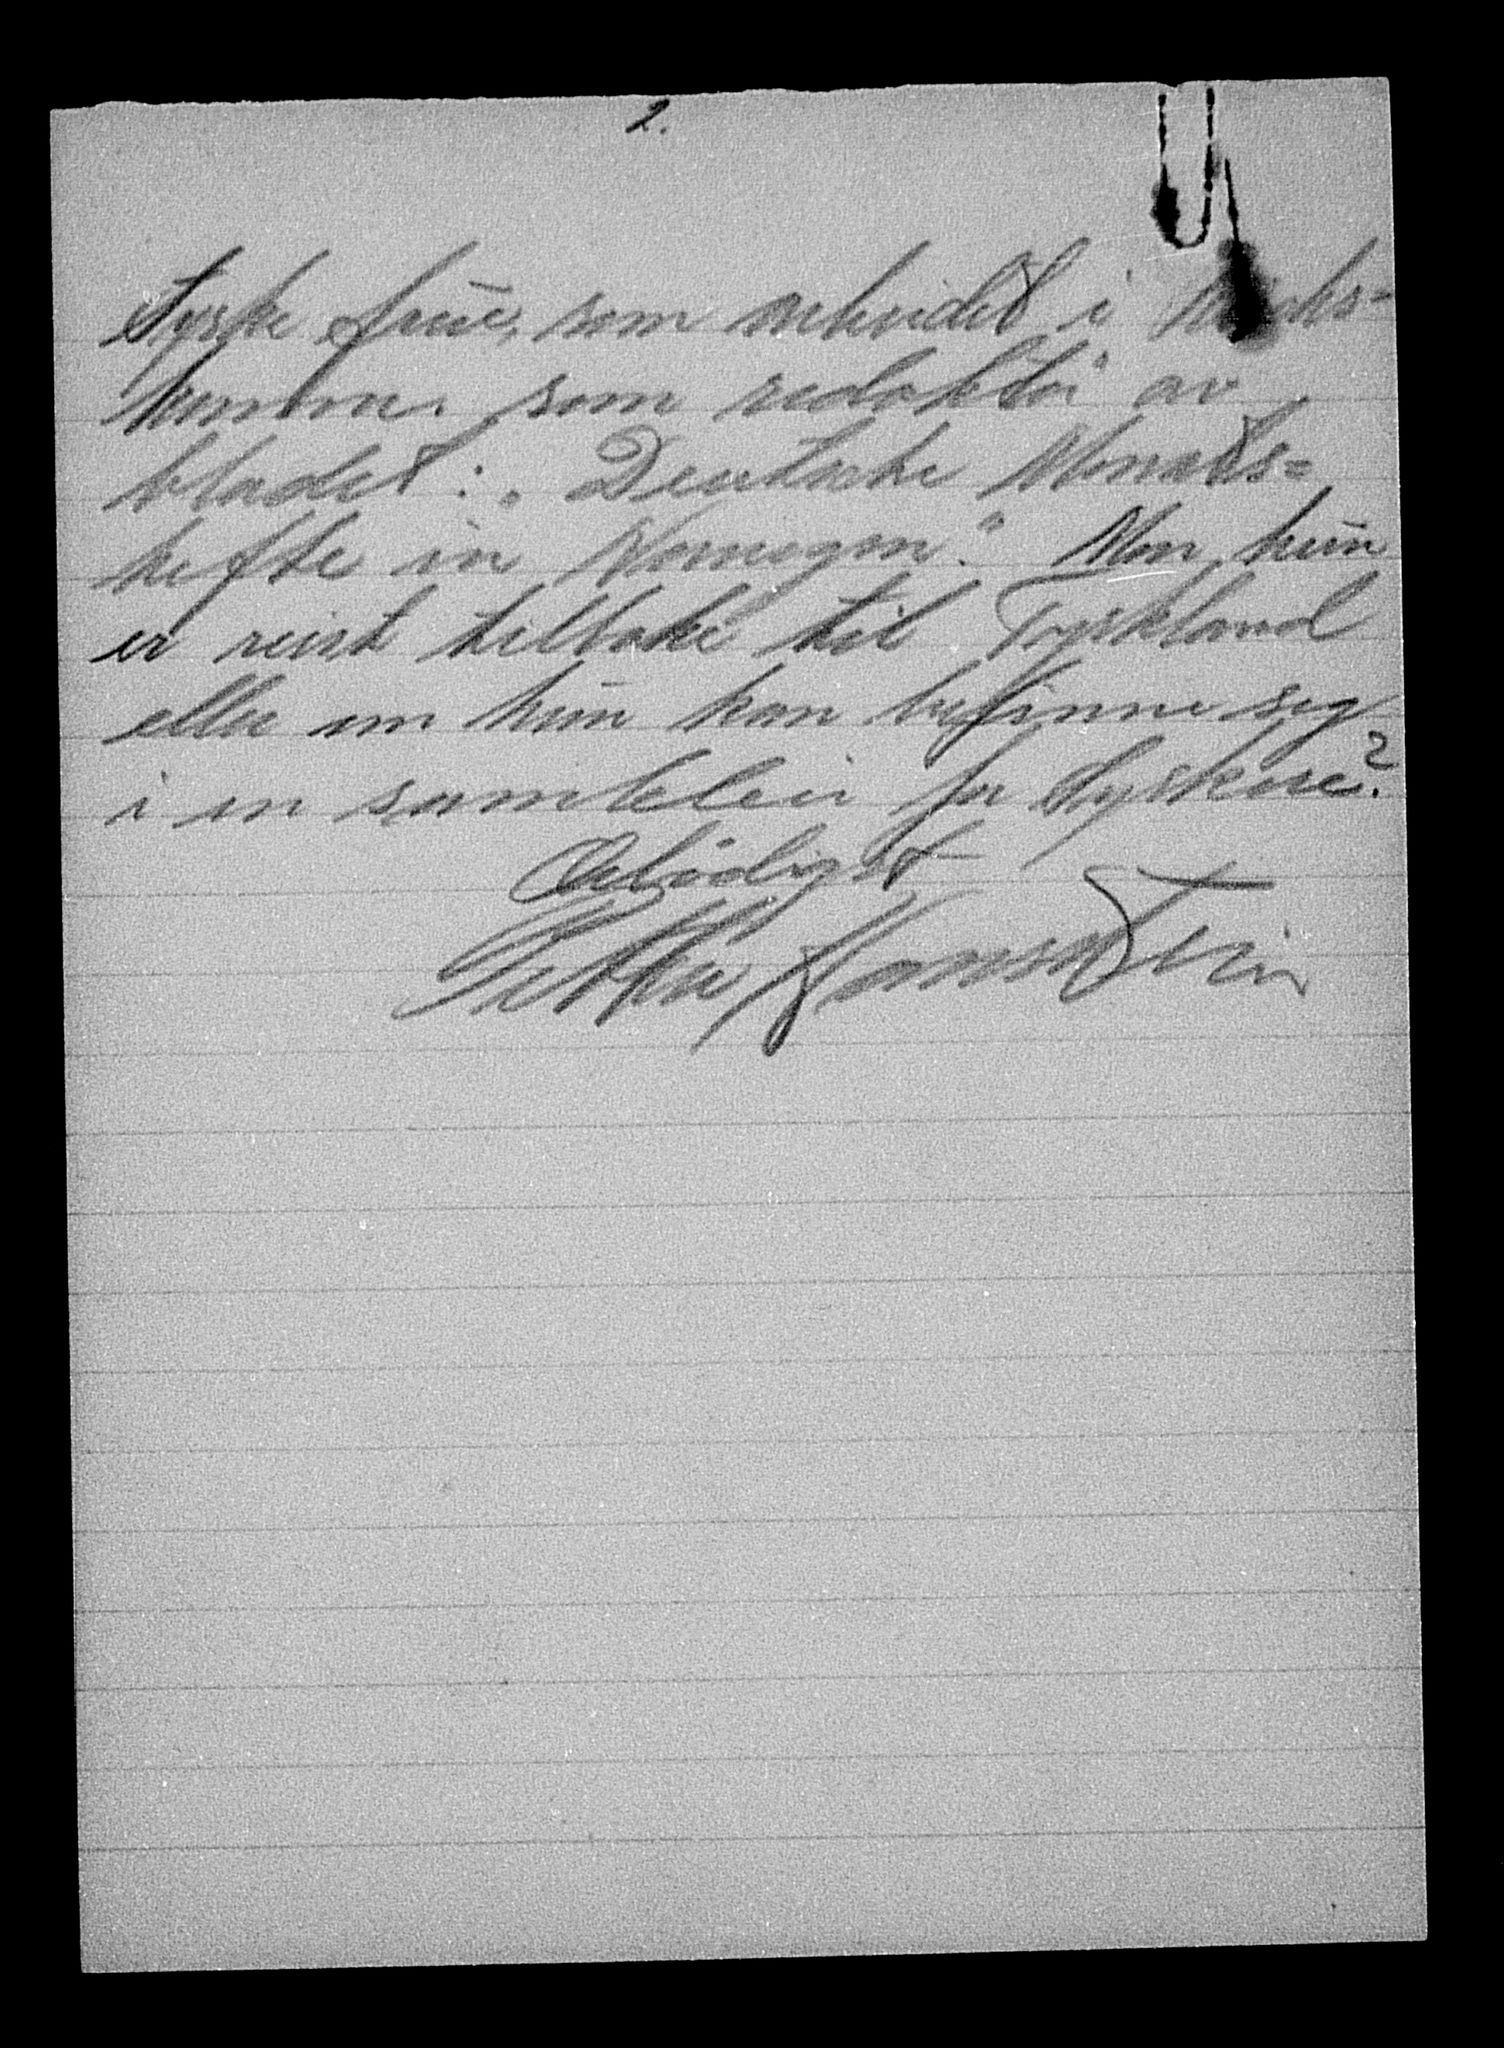 2.
tyske frue, som arbeidet i
som redaktör av
bladet: „Deutsche Monats=
hefte in Norwegen." Mon hun
er reist tilbake til Tyskland
eller om hun kan befinne seg
i en samleleir for tyskere?
Ærbödigst